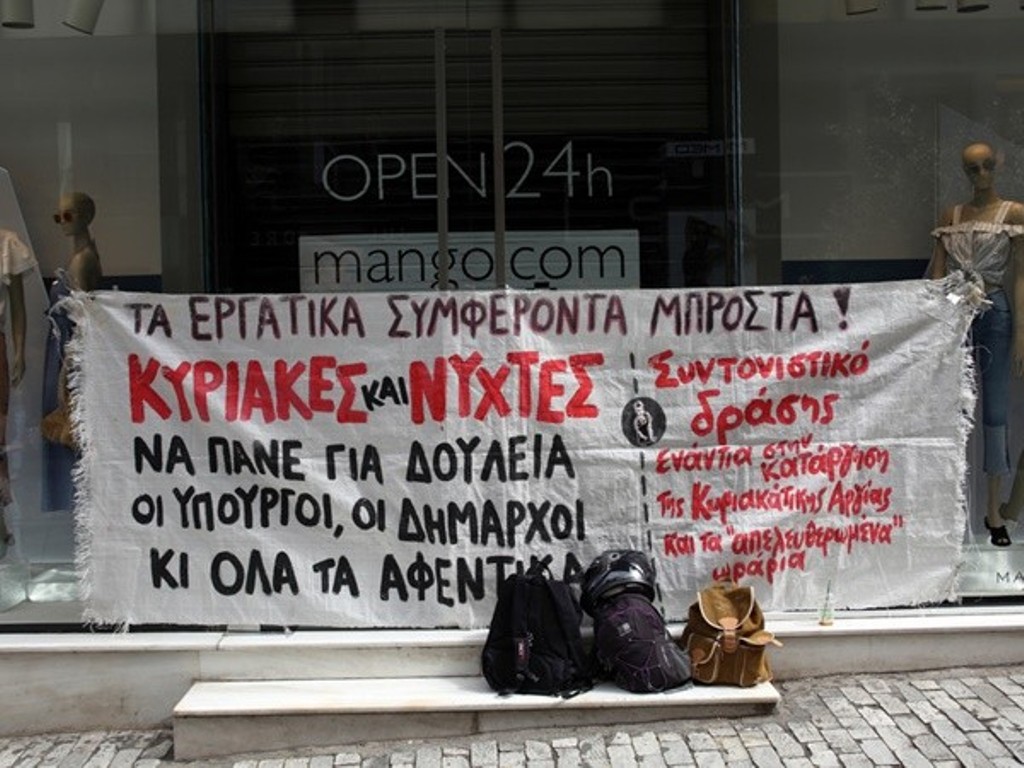 OPEN 24h
mango.com
ΤΑ ΕΡΓΑΤΙΚΑ ΣΥΜΦΕΡΟΝΤΑ ΜΠΡΟΣΤΑ!
ΚΥΡΙΑΚΕΣ ΚΑΙ ΝΥΧΤΕΣ
ΝΑ ΠΑΝΕ ΓΙΑ ΔΟΥΛΕΙΑ
ΟΙ ΥΠΟΥΡΓΟΙ, ΟΙ ΔΗΜΑΡΧΟΙ
ΚΙ ΟΛΑ ΤΑ ΑΦΕΝΤΙΚΑ
Συντονιστικό
δράσης
ενάντια στην
κατάργηση
της Κυριακάτικης Αργίας
και τα "απελευθερωμένα"
ωράρια